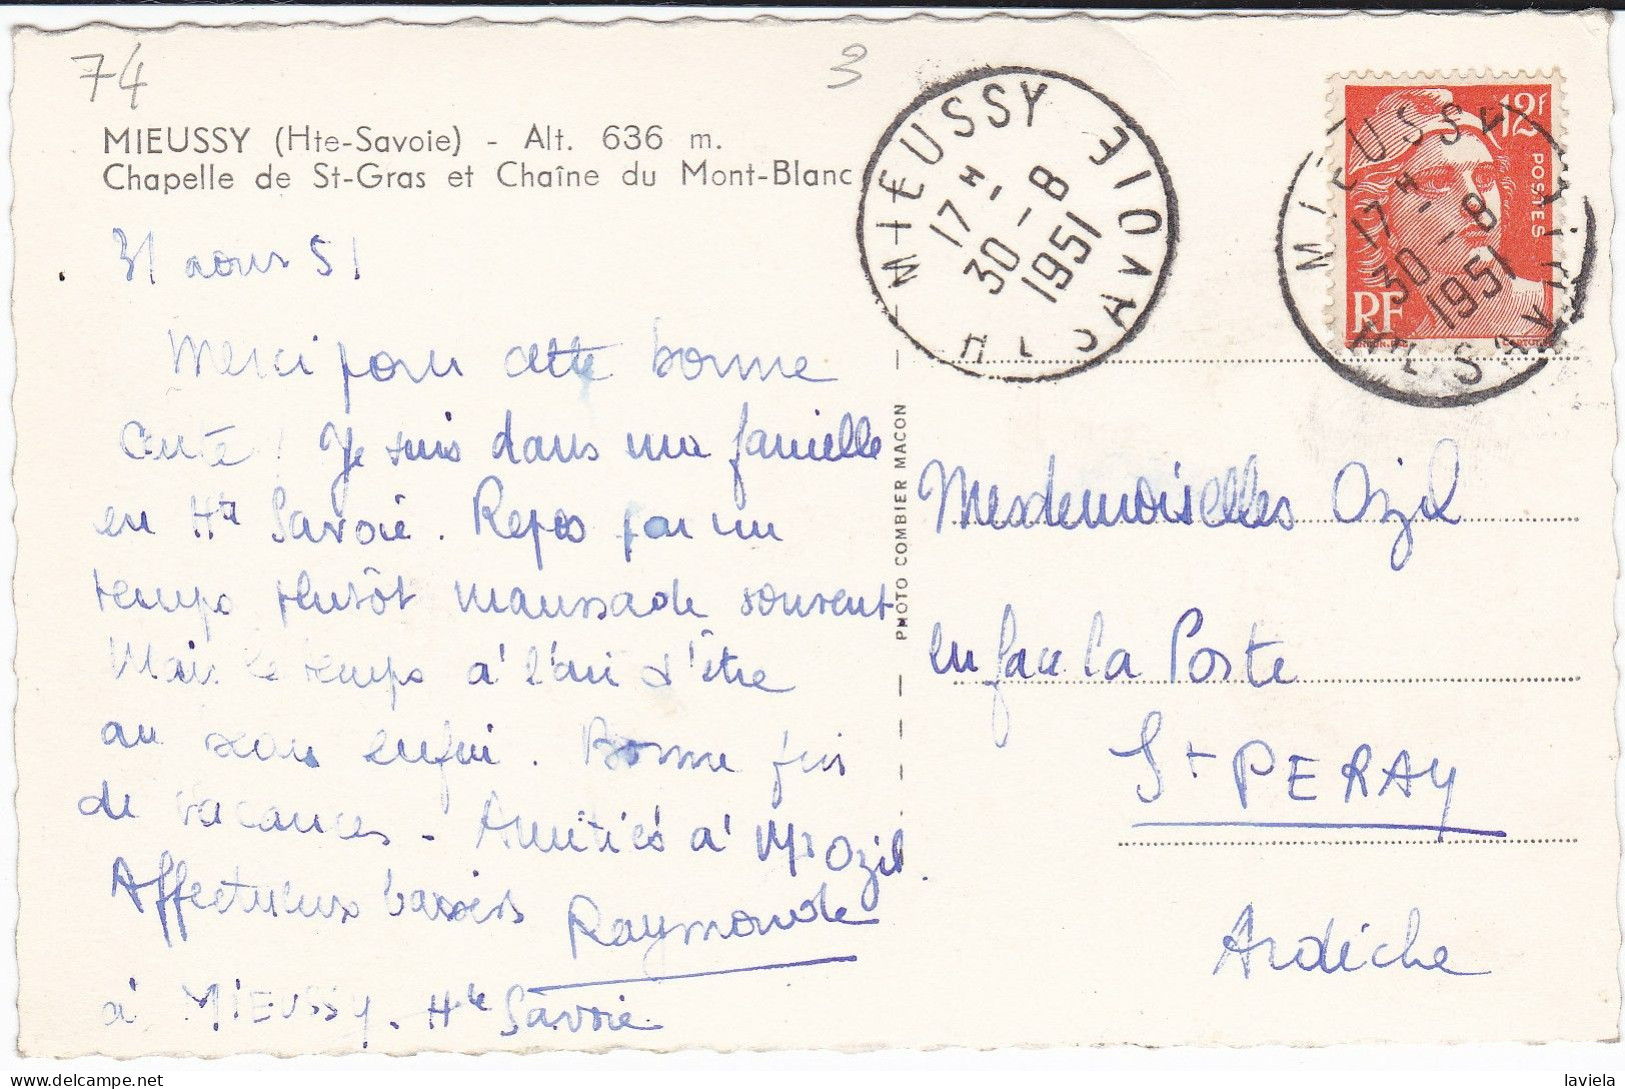 74
3
MIEUSSY (Hte-Savoie) - Alt. 636 m.
Chapelle de St-Gras et Chaîne du Mont-Blanc
31 aout 51
Merci pour cette bonne
carte ! Je suis dans ma famille
en Hte Savoie. Repos par un
temps plutôt maussade souvent
Mais le temps a l'air d'être
au beau enfin. Bonne fin
de vacances - Amitiés à Mr Ozil.
Affectueux baisers Raymonde
à MIEUSSY. Hte Savoie
PHOTO COMBIER MACON
MIEUSSY
17 H -
30 - 8
1951
HTE SAVOIE
12f
POSTES
RF
MIEUSSY
17 H -
30 - 8
1951
HTE SAVOIE
Mesdemoiselles Ozil
en face la Poste
St PERAY
Ardèche
delcampe.net
laviela